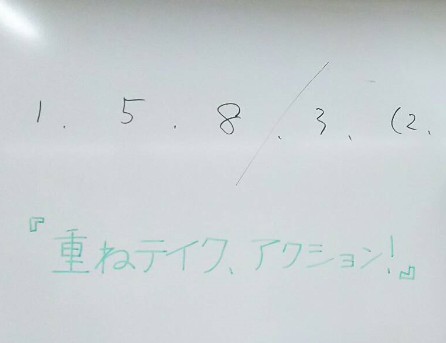 1. 5. 8. / 3. (2.
『重ねテイク、アクション!』